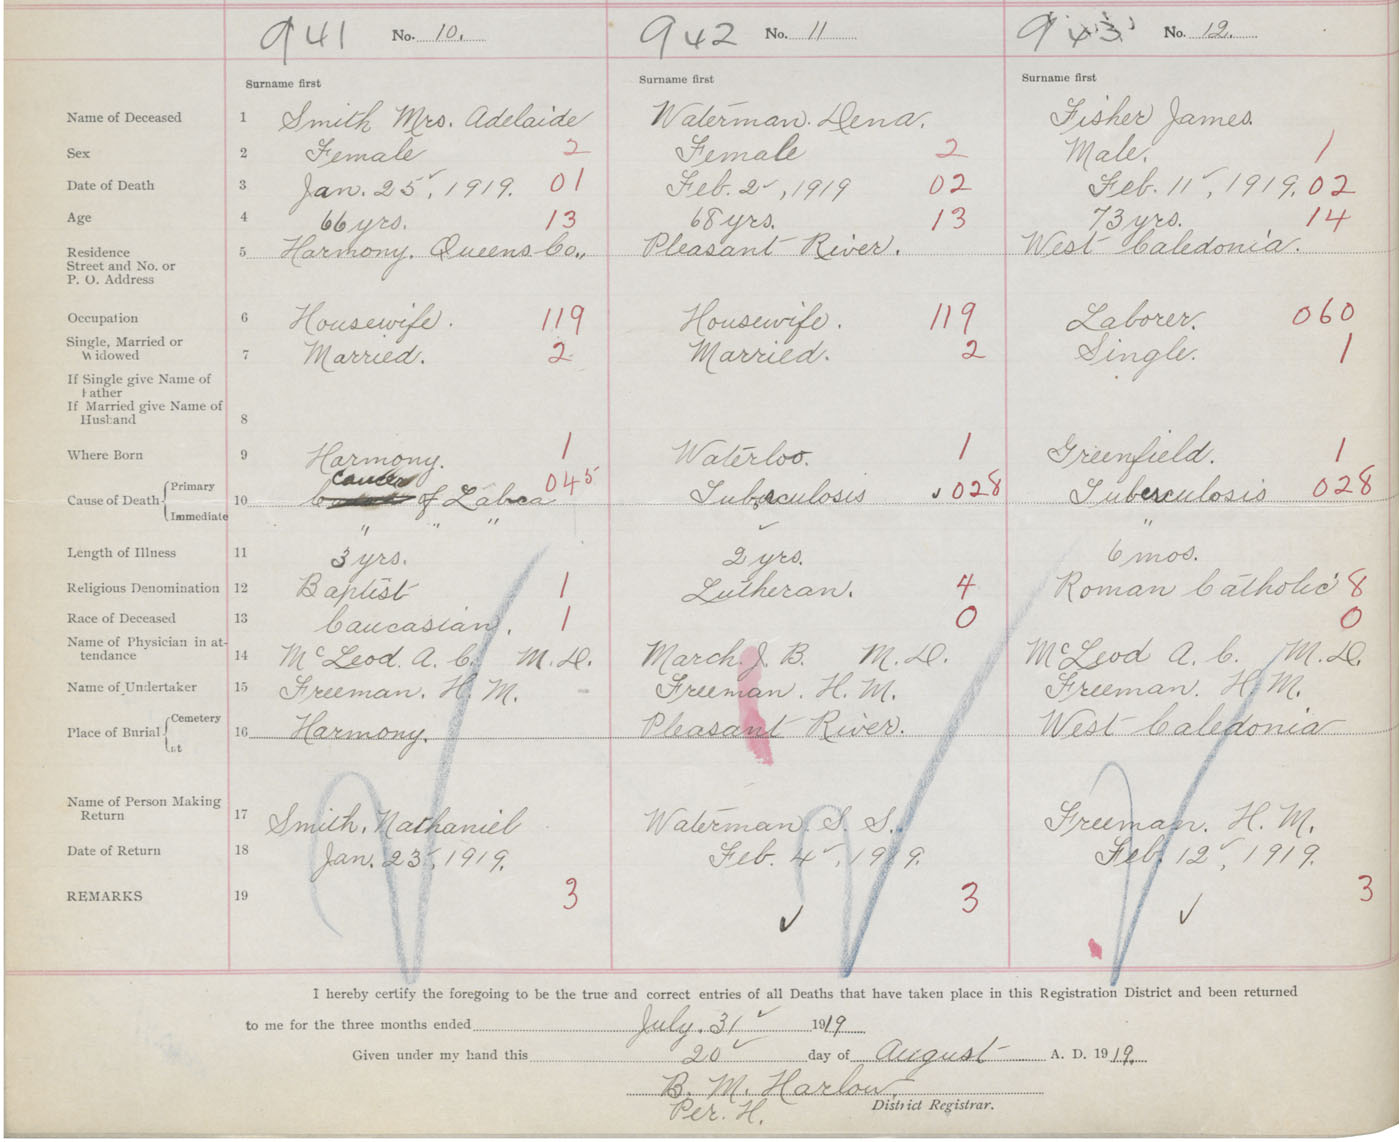 941 No. 10. 942 No. 11 943 No. 12.
Surname first Surname first Surname first
Name of Deceased 1 Smith Mrs. Adelaide Waterman. Dena. Fisher James.
Sex 2 Female 2 Female 2 Male. 1
Date of Death 3 Jan. 25, 1919. 01 Feb. 2, 1919 02 Feb. 11, 1919. 02
Age 4 66 yrs. 13 68 yrs. 13 73 yrs. 14
Residence 5 Harmony. Queens Co., Pleasant River. West Caledonia.
Street and No. or
P. O. Address
Occupation 6 Housewife. 119 Housewife. 119 Laborer. 060
Single, Married or
Widowed 7 Married. 2 Married. 2 Single. 1
If Single give Name of
Father
If Married give Name of
Husband 8
Where Born 9 Harmony. 1 Waterloo. 1 Greenfield. 1
Cause of Death Primary 10 cancer of Labia 045 Tuberculosis ✓ 028 Tuberculosis 028
Immediate " " " "
Length of Illness 11 3 yrs. 2 yrs. 6 mos.
Religious Denomination 12 Baptist 1 Lutheran. 4 Roman Catholic 8
Race of Deceased 13 Caucasian. 1 0 0
Name of Physician in at-
tendance 14 McLeod. A. C. M. D. March. J. B. M. D. McLeod A. C. M. D.
Name of Undertaker 15 Freeman. H. M. Freeman. H. M. Freeman. H. M.
Place of Burial Cemetery 16 Harmony. Pleasant River. West Caledonia
Lot
Name of Person Making
Return 17 Smith, Nathaniel Waterman. S. S. Freeman. H. M.
Date of Return 18 Jan. 23, 1919. Feb. 4, 1919. Feb. 12, 1919.
REMARKS 19 3 ✓ 3 ✓ 3
I hereby certify the foregoing to be the true and correct entries of all Deaths that have taken place in this Registration District and been returned
to me for the three months ended July. 31 1919
Given under my hand this 20 day of August A. D. 1919.
B. M. Harlow,
Per. H. District Registrar.